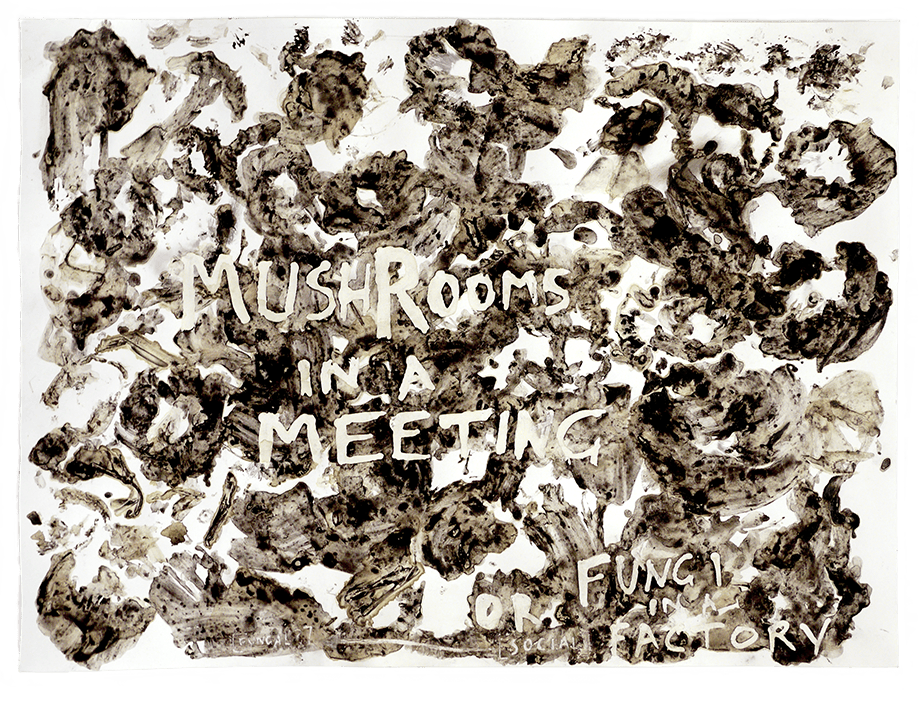 MUSHROOMS
IN A
MEETING
OR FUNGI
IN A
FACTORY
[FUNGAL] [SOCIAL]